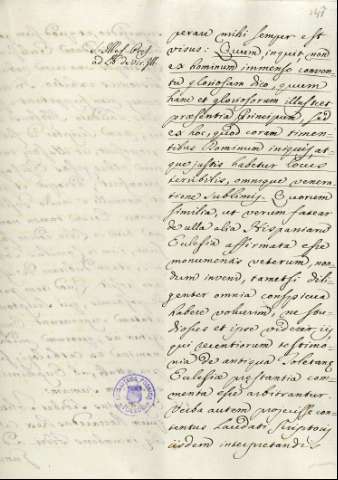 147
S. Ildef. Præf.
ad L. de Vir. Ill.
perau mihi semper est
visus: Quem, inquit, non
ex hominum immenso conven-
tu gloriosum dico, quum
hunc et gloriosorum illustret
præsentia Principum, sed
ex hoc, quod coram timen-
tibus Dominum iniquis, at-
que justis habetur locus
terribilis, omnique venera-
tione sublimis. Quorum
similia, ut verum fatear
de ulla alia Hispaniarum
Eclesia affirmata esse
monumentis veterum, non-
dum inveni, tametsi dili-
genter omnia conspicua
habere voluerim, ne fon-
et ipse videar, iis
qui recentiorum testimo-
nia de antiqua Toletanæ
Eclesiæ præstantia com-
menta esse arbitrantur.
Verba autem projecisse con-
tentus laudati Scriptoris
iisdem interpretandis